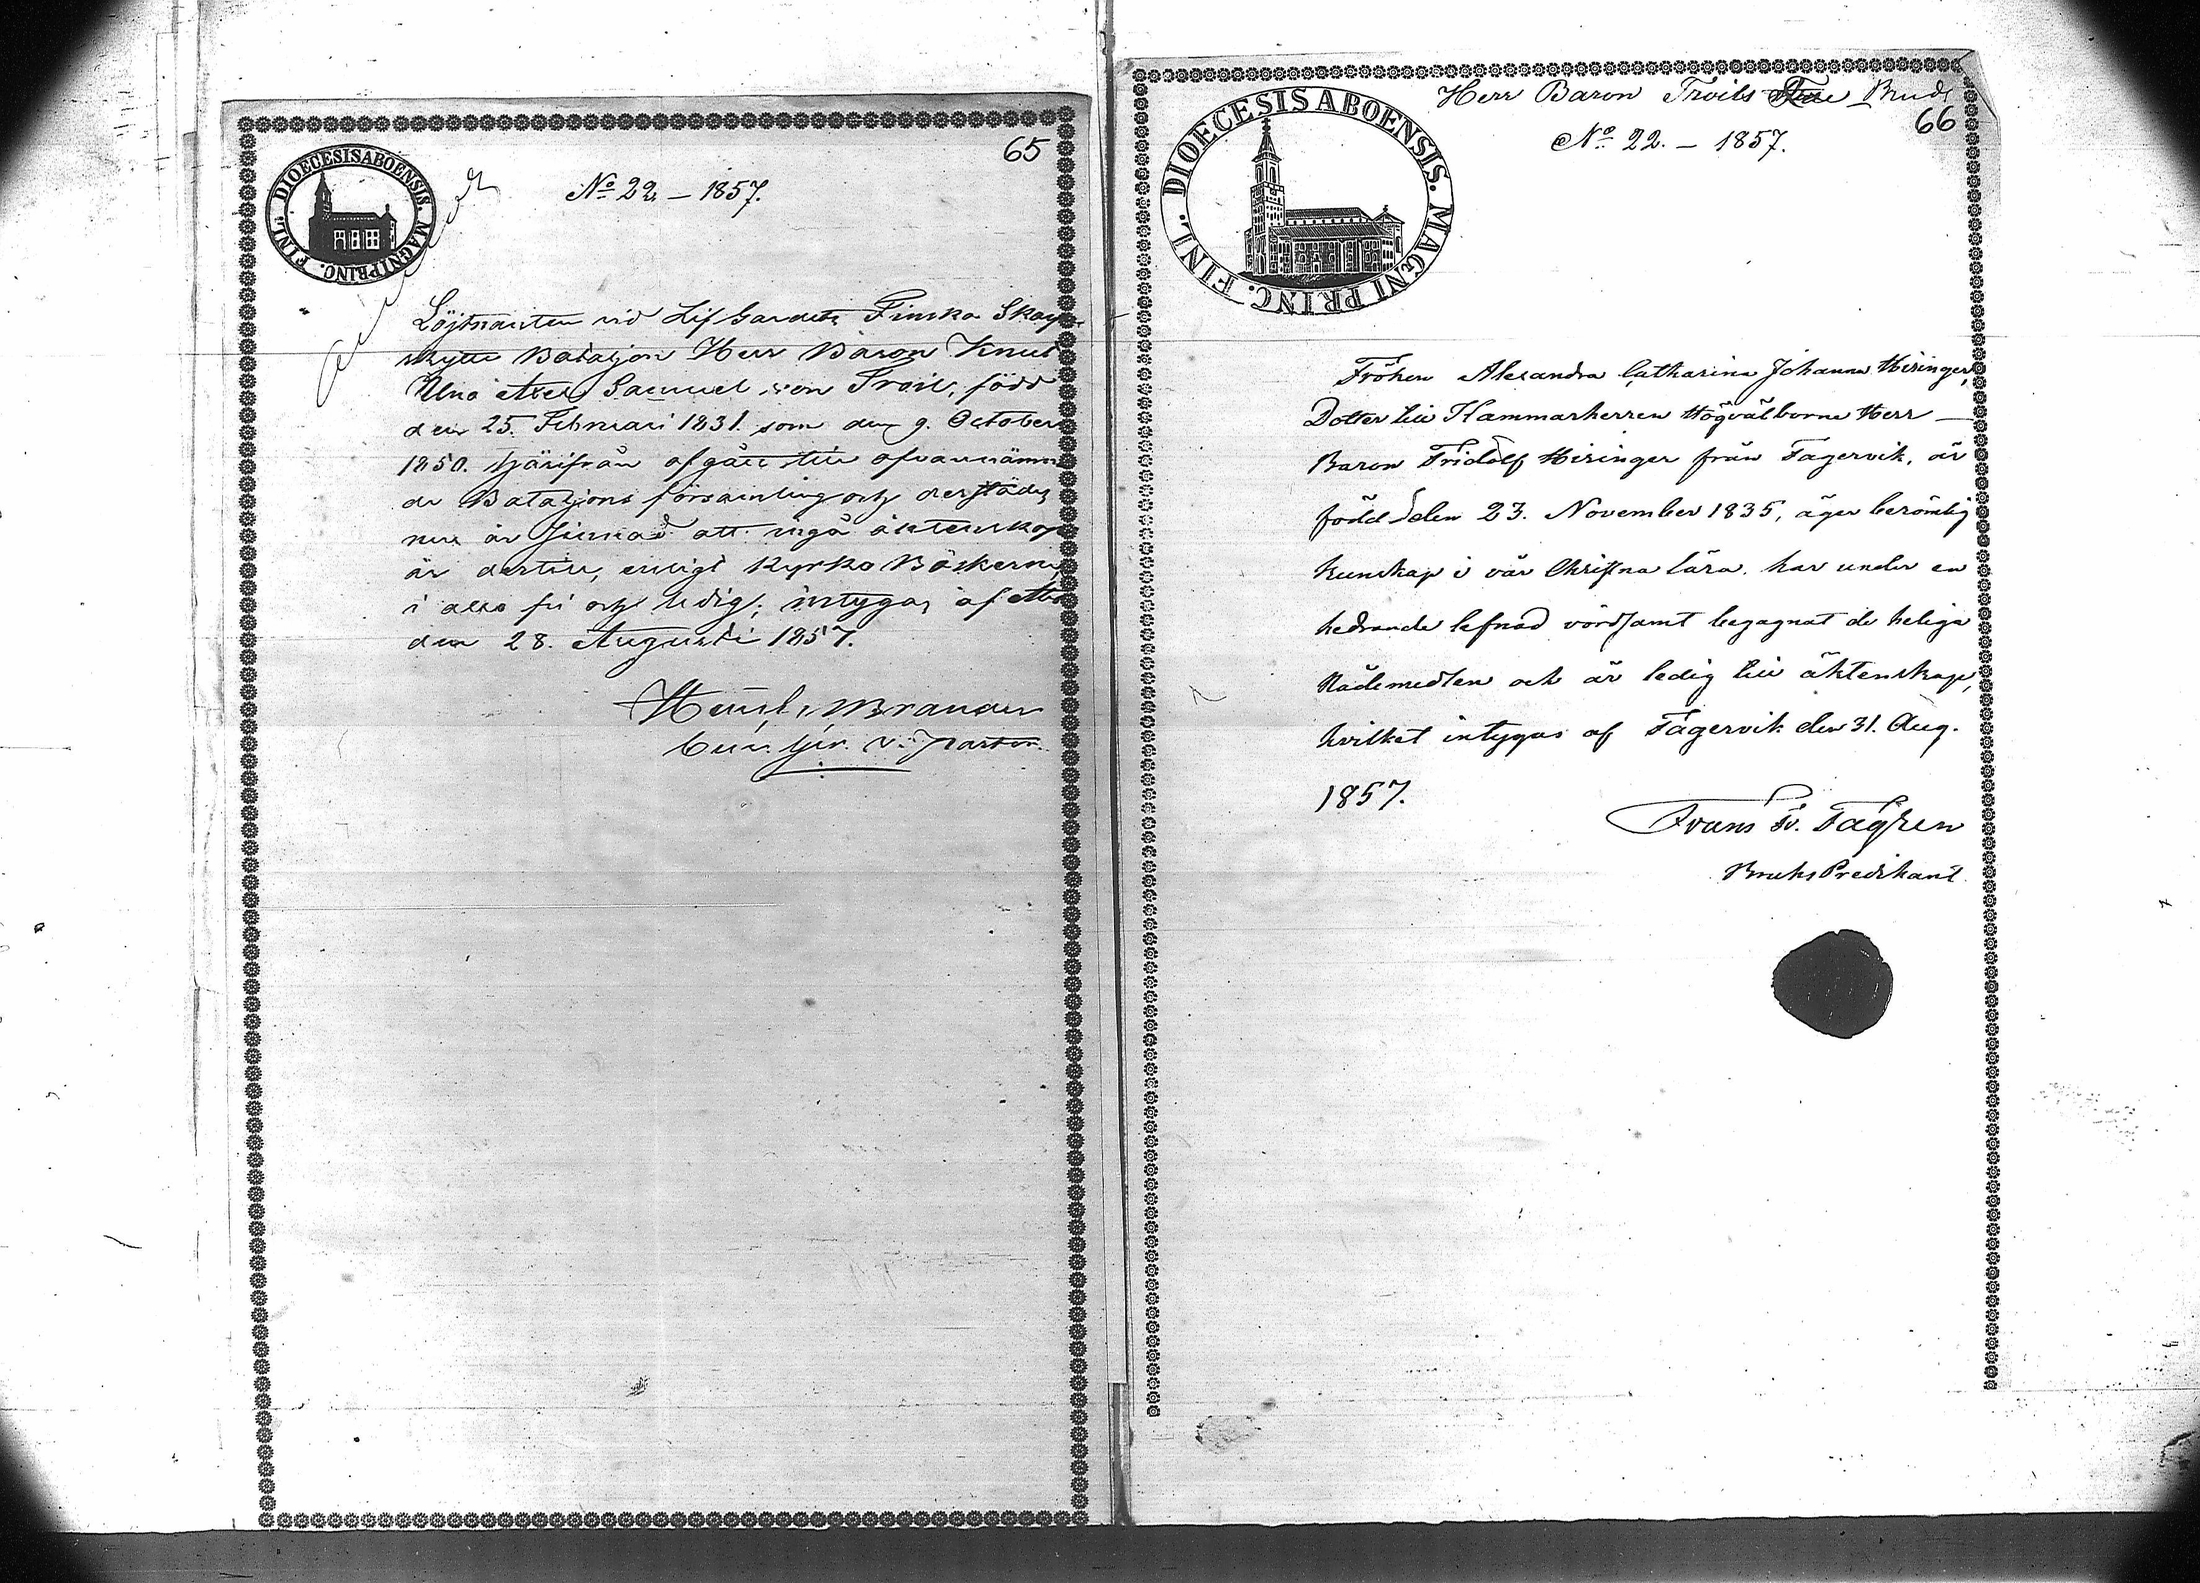 65
DIOECESIS ABOENSIS. MAGNI PRINC. FINL.
No 22 – 1857.
Löjtnanten vid Lif Gardets Finska Skarp-
skytte Bataljon Herr Baron Knut
Uno Axel Samuel von Troil, född
den 25. Februari 1831. som den 9. October
1850. härifrån afgått till ofvannämn-
de Bataljons församling och derstädes
nu är sinnad att ingå äktenskap
är dertill, enligt Kyrko Böckerne,
i allo fri och ledig; intygas af Åbo
den 28. Augusti 1857.
Brander
v. Pastor.
Herr Baron Troils Brud
66
DIOECESIS ABOENSIS. MAGNI PRINC. FINL.
No 22. – 1857.
Fröken Alexandra Catharina Johanna Hisinger,
Dotter till Kammarherren Högvälborne Herr
Baron Fridolf Hisinger från Fagervik, är
född den 23. November 1835, äger berömlig
kunskap i vår Christna lära, har under en
hedrande lefnad vördsamt begagnat de heliga
Nådemedlen och är ledig till äktenskap,
hvilket intygas af Fagervik den 31. Aug.
1857.
Frans
BruksPredikant